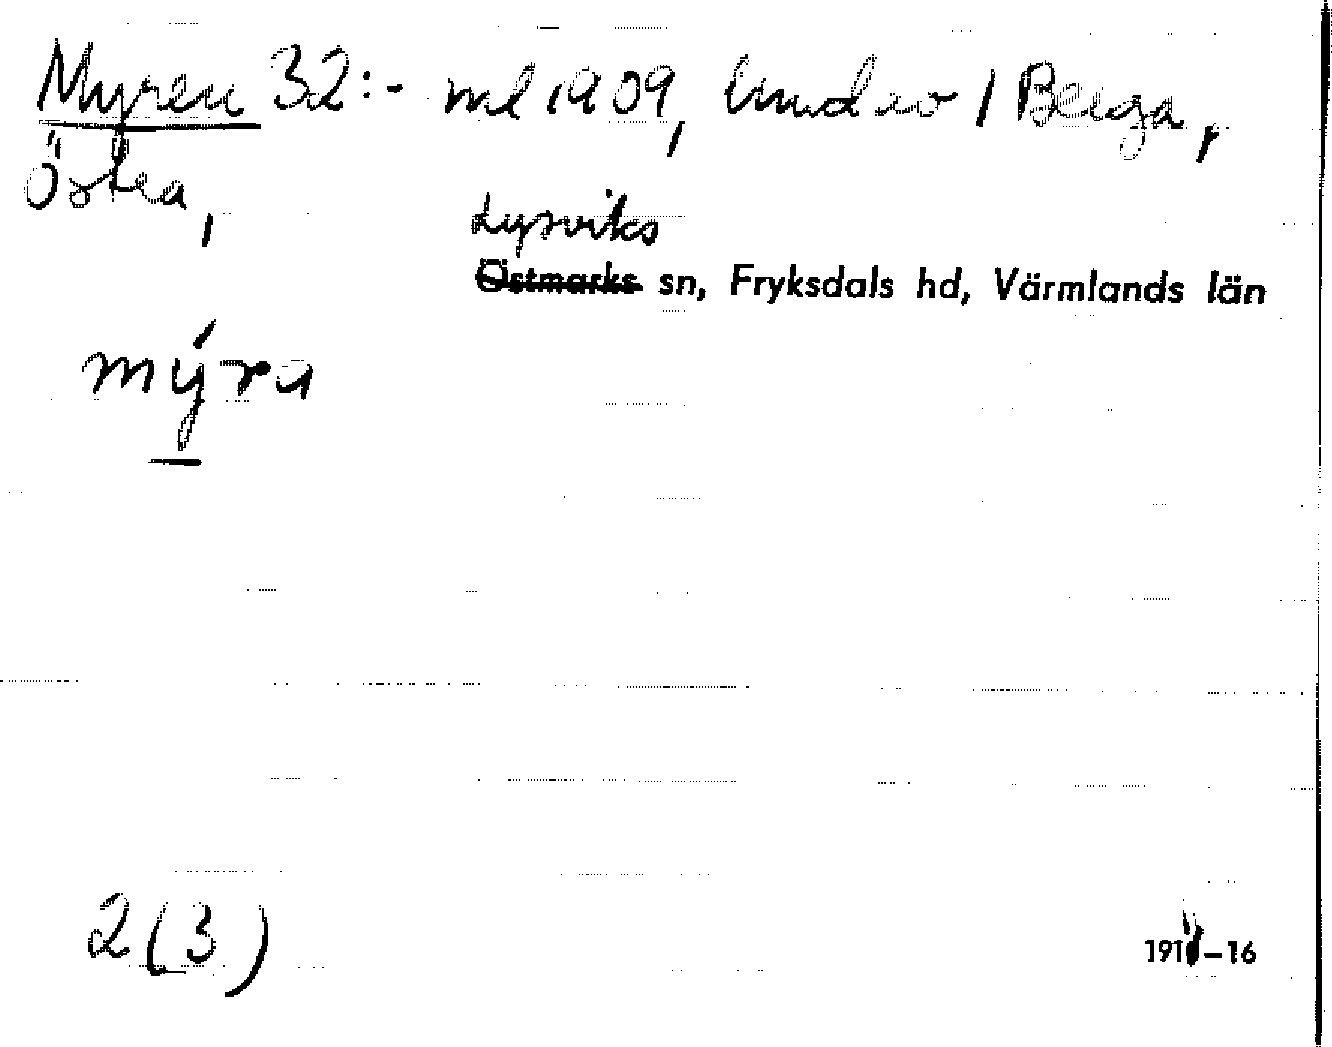 Myren 32:- ml 1909, Und av / Berga,
Östra,
Lysviks
Östmarks sn, Fryksdals hd, Värmlands län
mýra
2(3)
191 -16